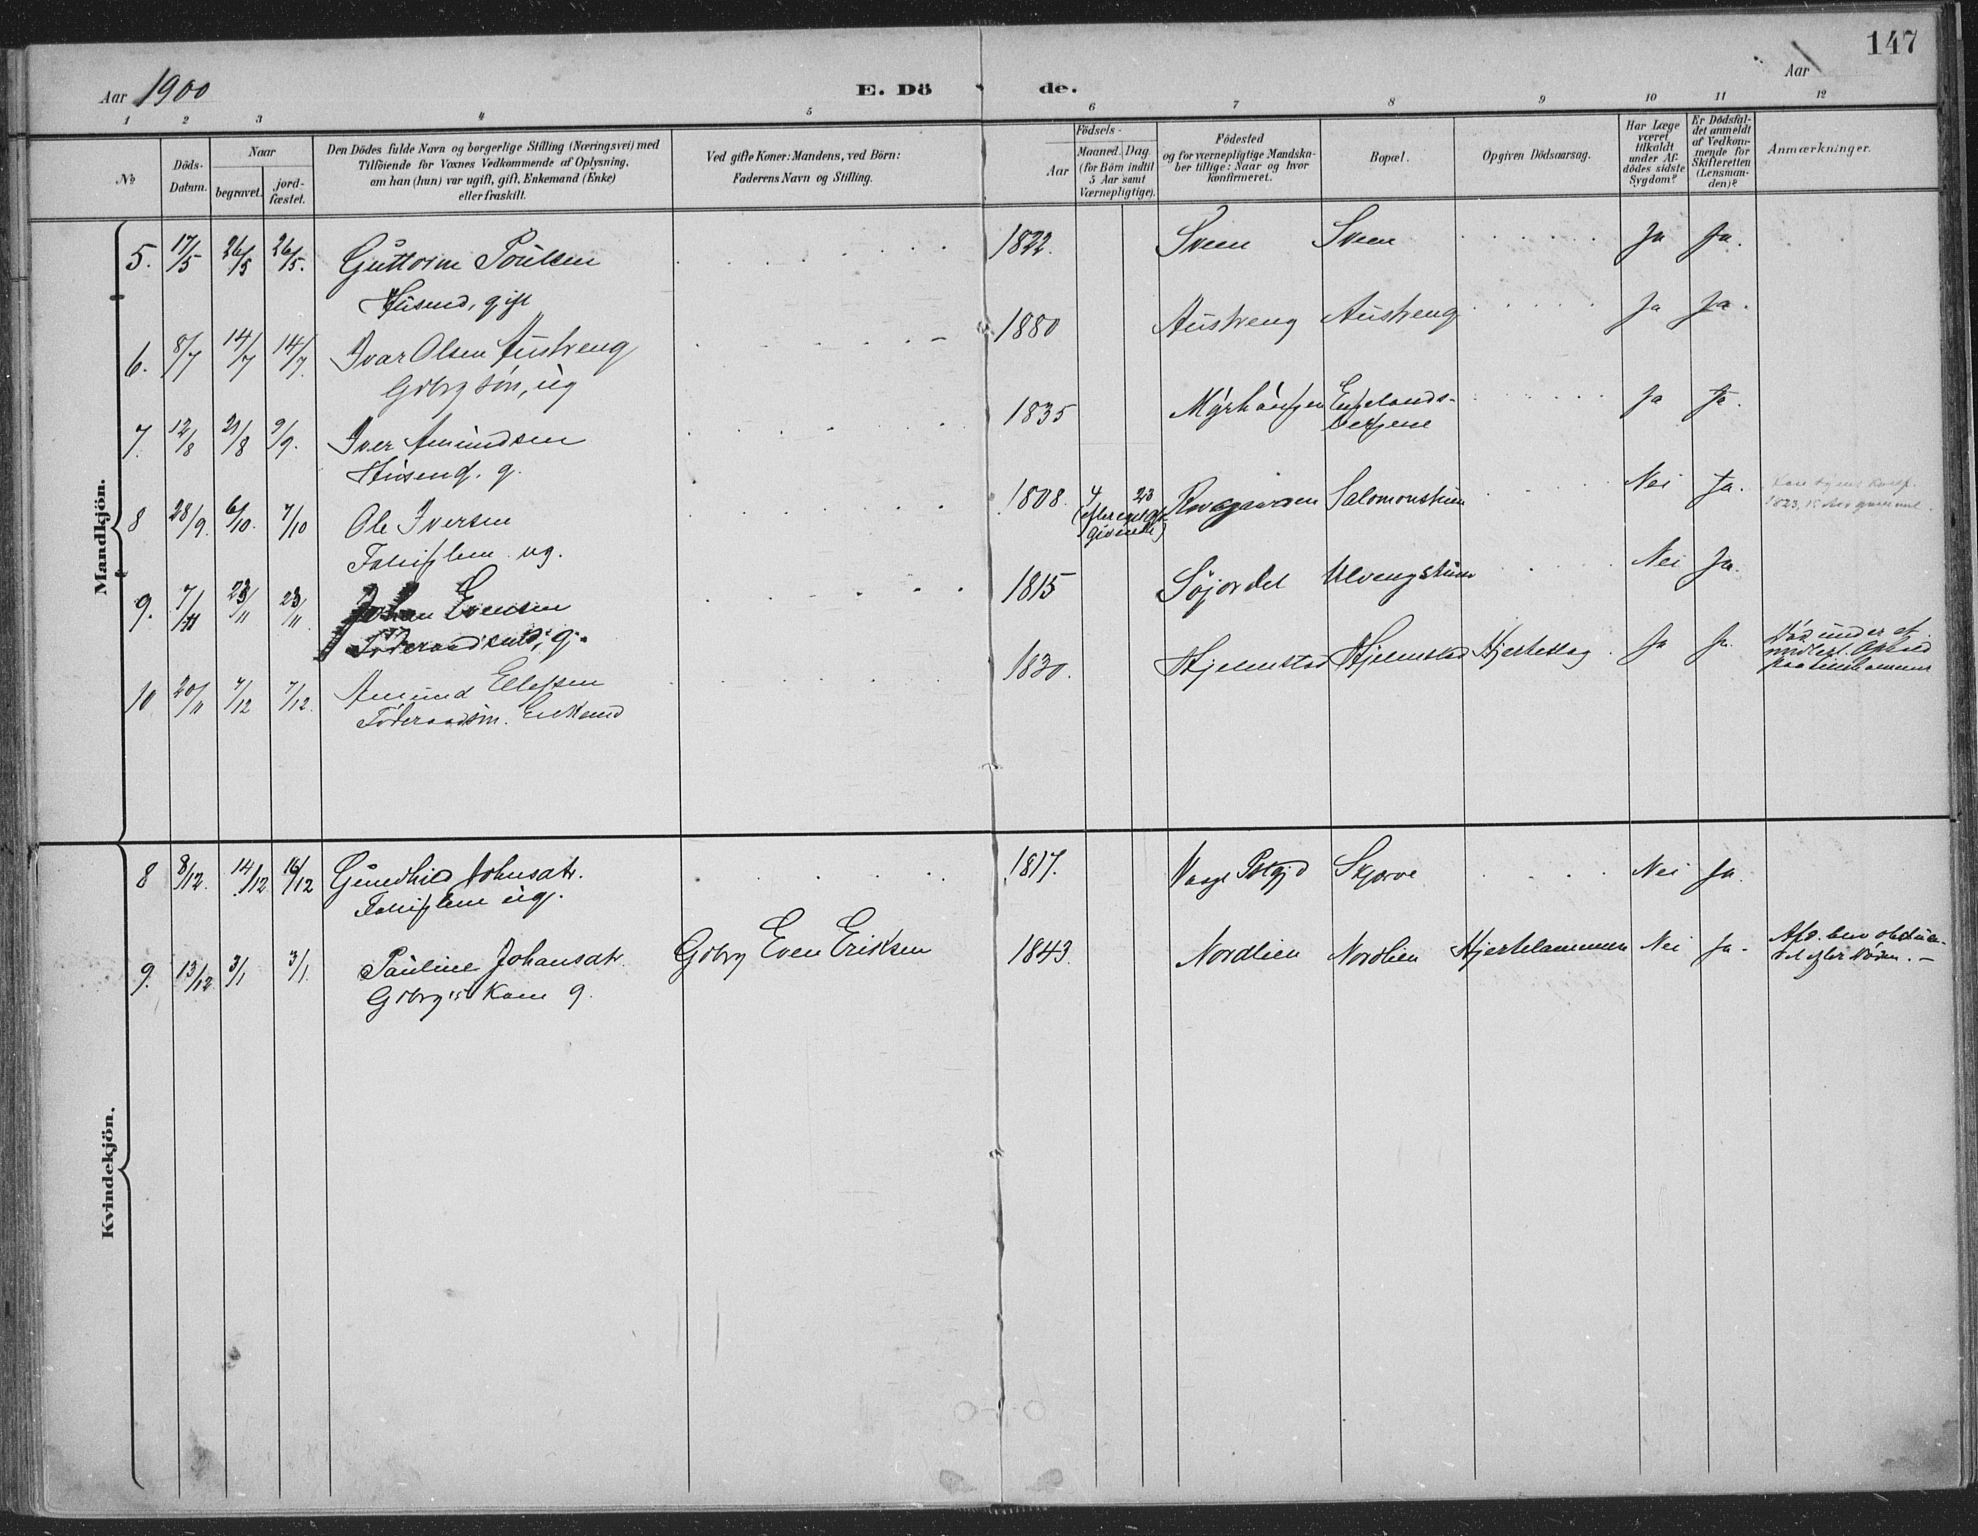 147
Aar 1900
E. Dö de.
Aar
1 2 3 4 5 6 7 8 9 10 11 12
No
Döds-Datum.
Naar
begravet.
jord-fæstet.
Den Dödes fulde Navn og borgerlige Stilling (Næringsvei) med
Tilföiende for Voxnes Vedkommende af Oplysning,
om han (hun) var ugift, gift, Enkemand (Enke)
eller fraskilt.
Ved gifte Koner: Mandens, ved Börn:
Faderens Navn og Stilling.
Födsels-
Aar
Maaned. Dag.
(for Börn indtil
5 Aar samt
Værnepligtige).
Födested
og for værnepligtige Mandska-
ber tillige: Naar og hvor
konfirmeret.
Bopæl.
Opgiven Dödsaarsag.
Har Læge
været
tilkaldt
under Af-
dödes sidste
Sygdom?
Er Dödsfal-
det anmeldt
af Vedkom-
mende for
Skifteretten
(Lensman-
den)?
Anmærkninger.
Mandkjön.
5. 17/5 26/5 26/5. Guttorm Poulsen 1822. Sveen Sveen Ja Ja.
Husmd, gift
6. 8/7 14/7 14/7. Ivar Olsen Austveng 1880 Austveng Austveng Ja Ja.
Gdbrg søn, ug
7. 12/8 21/8 9/9. Iver Amundsen 1835 Ja Ja.
Husmd. g.
8 28/9. 6/10. 7/10 Ole Iversen 1808. 4 23 Salomonstuen Nei Ja.
ug.
9. 7/11 23/11 23/11 Johan Evensen 1815 Søjordet Ulvengstuen Nei Ja.
g.
10 20/11 7/12 7/12. Amund Ellefsen 1830. Hjelmstad Hjelmstad Hjerteslag Ja Ja.
Föderaadsm. Enkemd
Kvindekjön.
8 8/12. 14/12 16/12 Gunhild Johnsdtr. 1817. Skjærve Nei Ja.
ug.
9. 13/12 3/1 3/1. Pauline Johansdtr. Gdbrg Even Eriksen 1843 Nordlien Nordlien Hjertelammelse Nei Ja.
Gdbrg's Kone g.